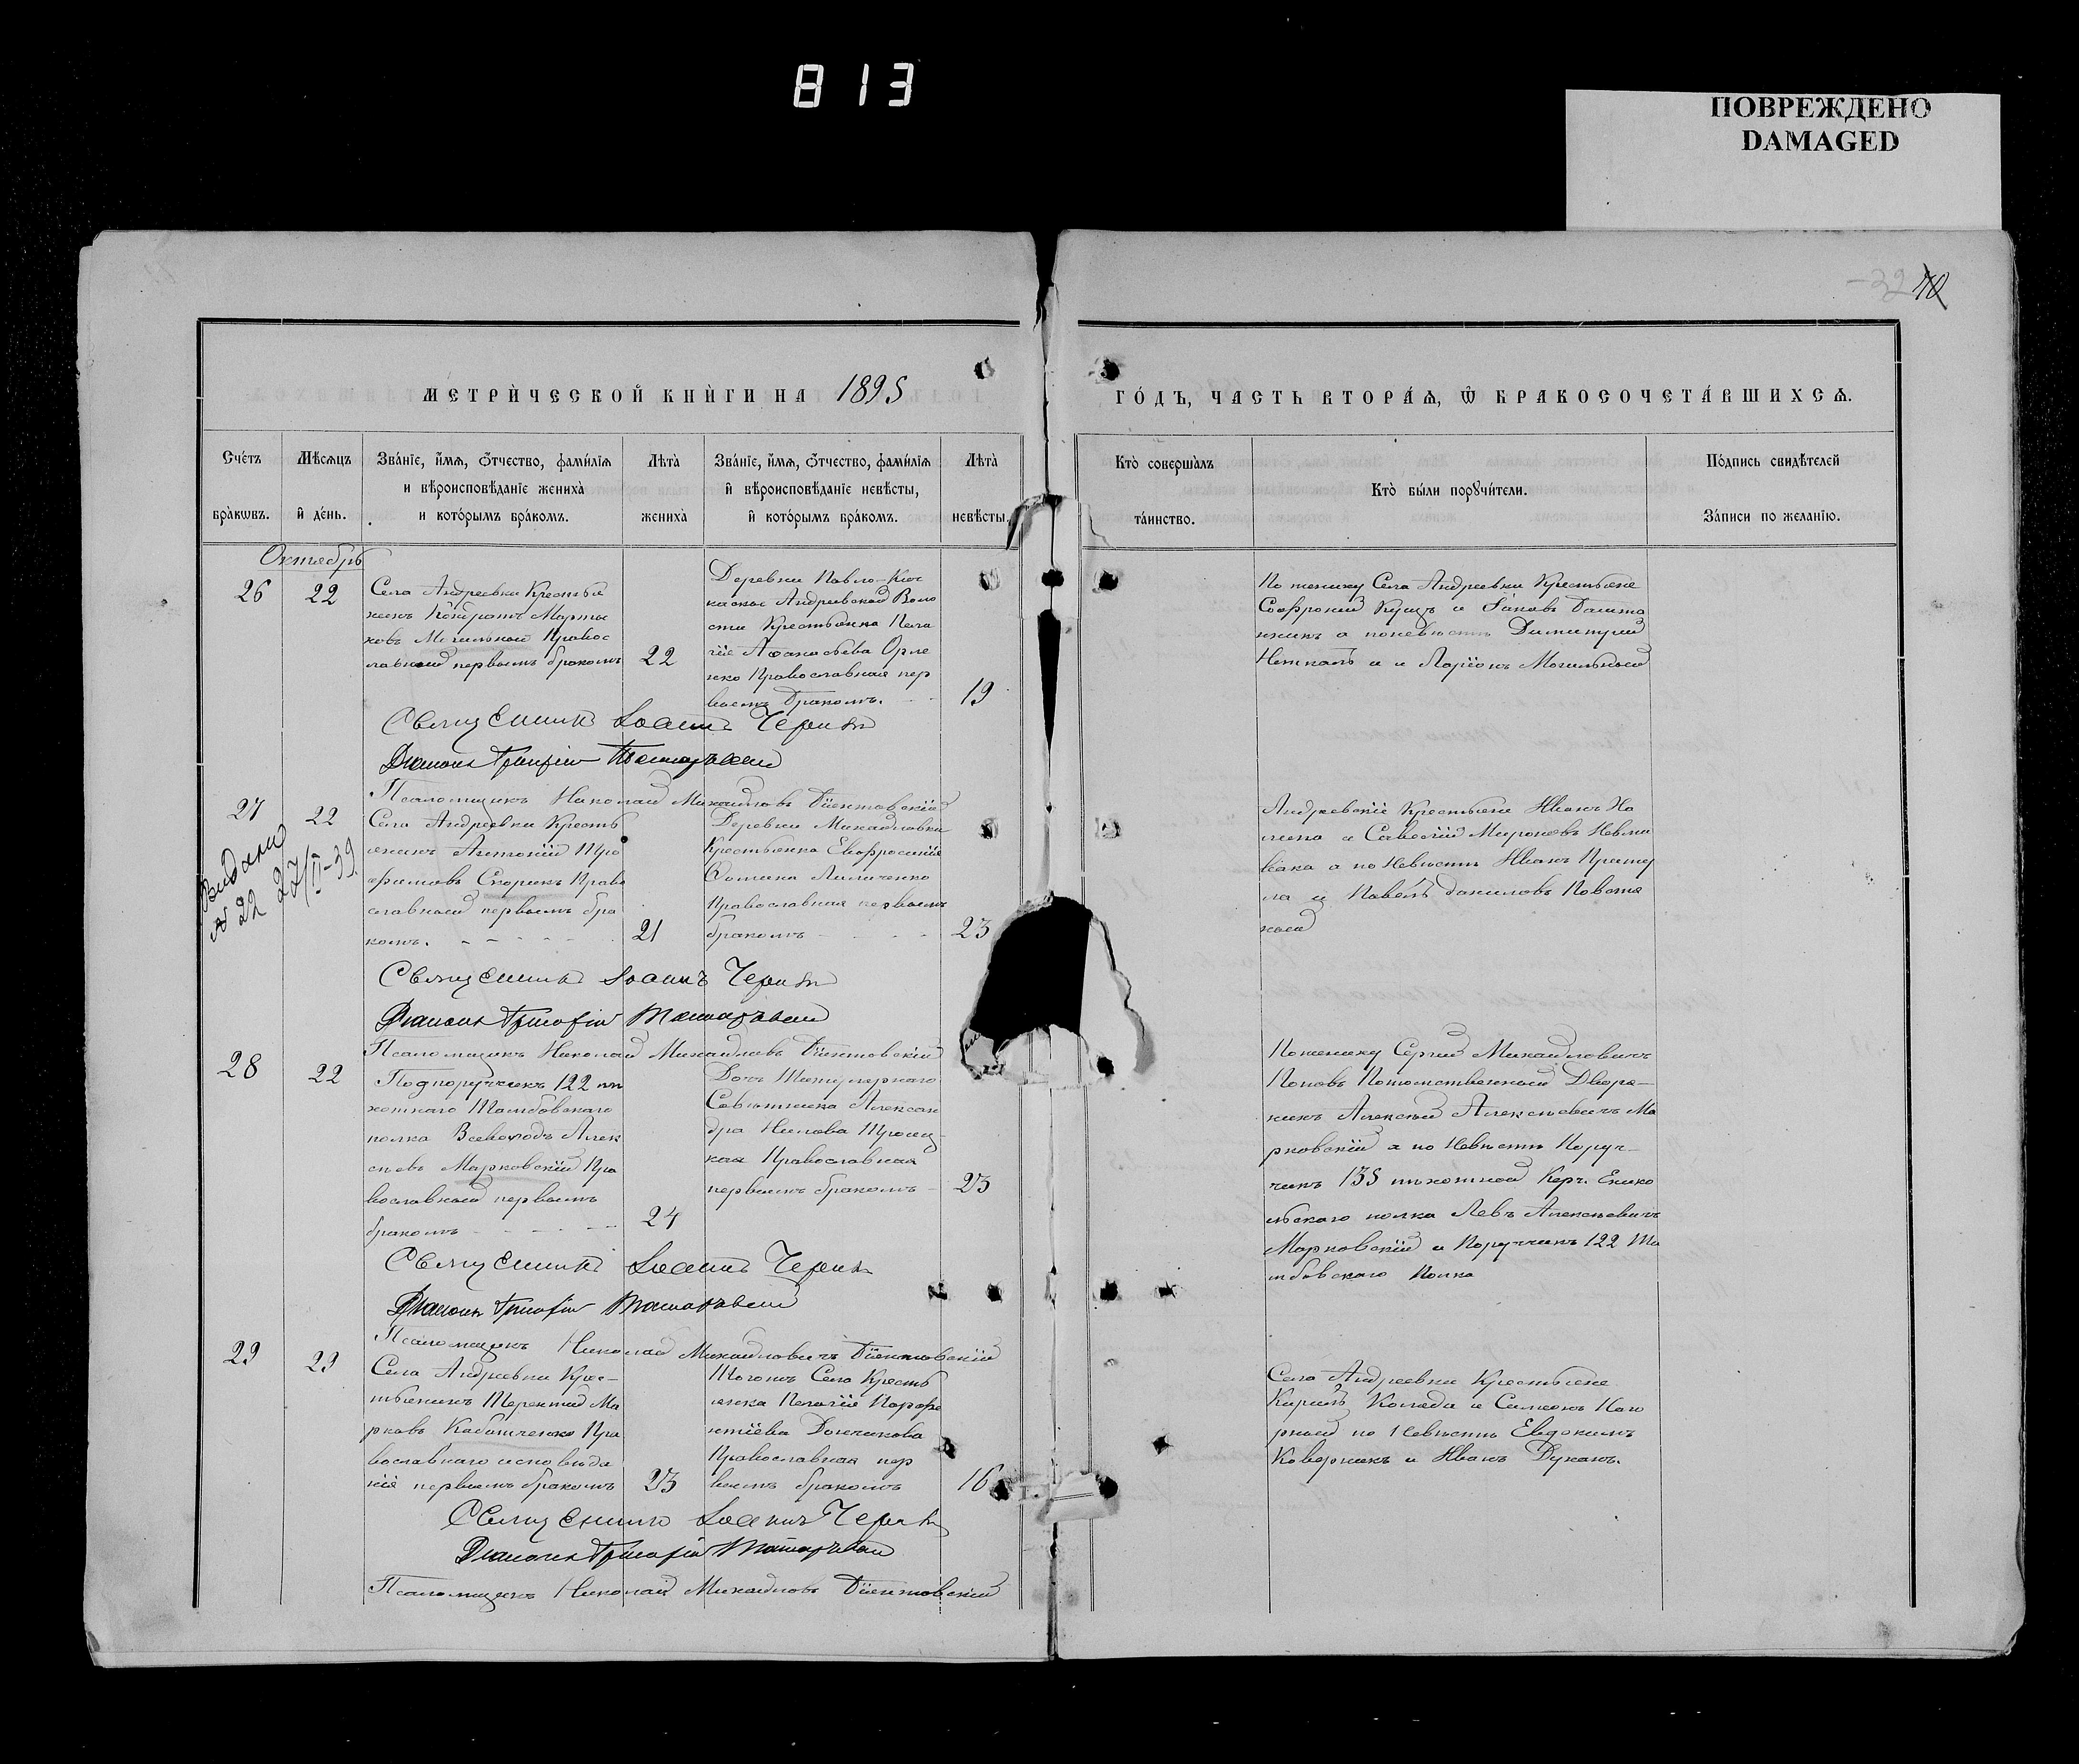 813
ПОВРЕЖДЕНО
DAMAGED
32 40
МЕТРИ́ЧЕСКОЙ КНИ́ГИ НА 1895
ГО́ДЪ, ЧАСТЬ ВТОРА́Ѧ, Ѿ БРАКОСОЧЕТА́ВШИХСѦ.
Сче́тъ бра́кѡвъ.
Мѣсѧцъ и҆ де́нь.
Зва́нїе, и҆́мѧ, ѻ҆́тчество, фами́лїѧ и вѣроисповѣ́данїе жениха̀ и кото́рымъ бра́комъ.
Лѣта̀ жениха̀
Зва́нїе, и҆́мѧ, ѻ҆́тчество, фами́лїѧ и҆ вѣроисповѣ́данїе невѣ́сты, и҆ кото́рымъ бра́комъ.
Лѣта̀ невѣ́сты.
Кто̀ соверша́лъ та́инство.
Кто̀ бы́ли порꙋчи́тели.
По́дпись свидѣ́телей За́писи по жела́нїю.
Октябрь
26
22
Села Андреевки Крестья
нинъ Кондратъ Марты
новъ Могильный Правос
лавный первымъ бракомъ
22
Деревни Павло-
Андреевской Воло
сти Крестьянка Пела
гія Афанасьева Орле
нко Православная пер
вымъ бракомъ.
19
По жениху Села Андреевки Крестьяне
Софроній Куцъ и Іаковъ
а по невѣстѣ Димитрій
и Ларіонъ Могильный
Священникъ Іоаннъ
Діаконъ
Псаломщикъ Николай Михайловъ
27
22
Видано
№ 22 27/II-39
Села Андреевки Кресть
янинъ Антоній Тро
фимовъ Скорикъ Право
славный первымъ бра
комъ.
21
Деревни Михайловки
Крестьянка Евфросинія
Фомина
Православная первымъ
бракомъ
23
Андреевскіе Крестьяне Иванъ
и Савастій Мироновъ
а по Невѣстѣ Иванъ
и Павелъ Даниловъ
Священникъ Іоаннъ
Діаконъ
Псаломщикъ Николай Михайловъ
28
22
Подпоручикъ 122 пѣ
хотнаго Тамбовскаго
полка Всеволодъ Алек
сѣевъ Марковскій Пра
вославный первымъ
бракомъ
24
Дочь Титулярнаго
Совѣтника Алексан
дра Нилова Троиц-
кая Православная
первымъ бракомъ
23
По жениху Сергій Михайловичъ
Поповъ Потомственный Дворя-
нинъ Алексѣй Алексѣевичъ Ма
рковскій а по Невѣстѣ Поруч-
чикъ 135 пѣхотной Керч. Енико
льскаго полка Левъ Алексѣевичъ
Марковскій и Поручикъ 122 Та
мбовскаго Полка
Священникъ Іоаннъ
Діаконъ
Псаломщикъ Николай Михайловичъ
29
29
Села Андреевки Крес-
тьянинъ Терентій Ма
рковъ Кабатченко Пра
вославнаго исповѣда
нія первымъ бракомъ
23
Тогожъ Села Кресть
янка Пелагія Парфе
нтіева Дончикова
Православная пер
вымъ бракомъ
16
Села Андреевки Крестьяне
Кирилъ Коляда и Симеонъ
по Невѣстѣ Евдокимъ
Коверникъ и Иванъ Дуканъ.
Священникъ Іоаннъ
Діаконъ
Псаломщикъ Николай Михайловъ